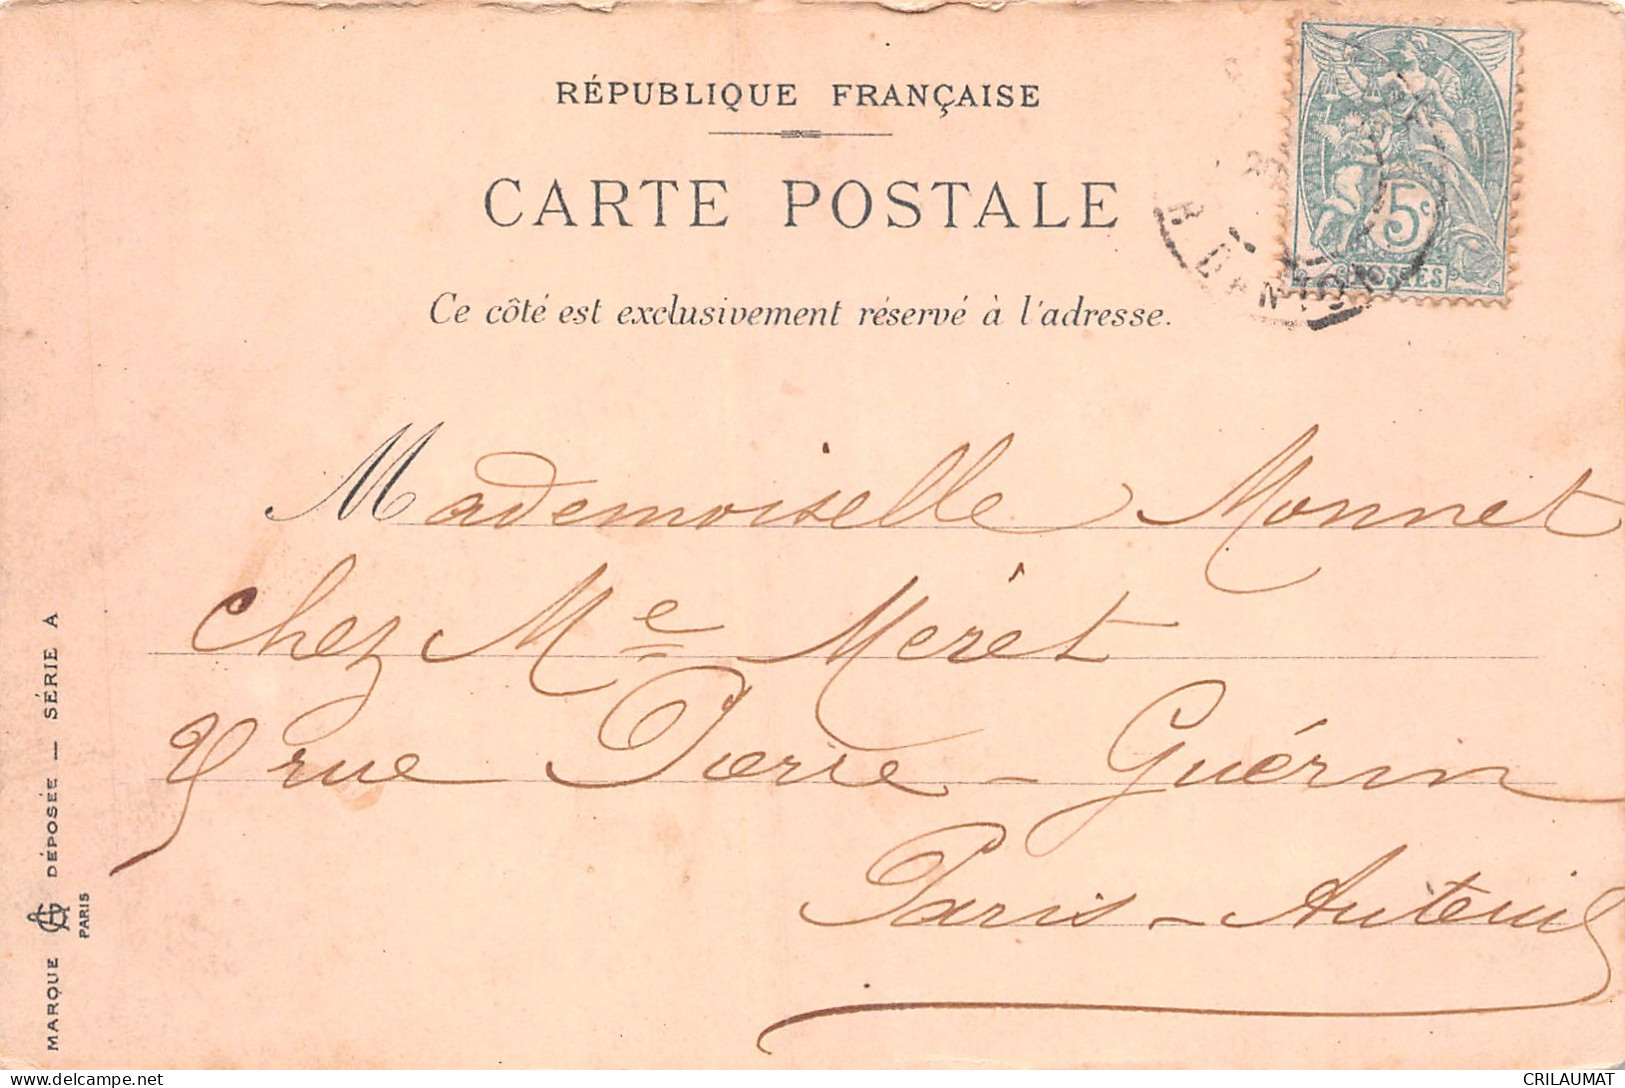 RÉPUBLIQUE FRANÇAISE
CARTE POSTALE
Ce côté est exclusivement réservé à l'adresse.
5c
POSTES
Mademoiselle Monnet
chez Me Meret
rue Pierre-Guérin
Paris-Auteuil
MARQUE DÉPOSÉE — SÉRIE A
PARIS
delcampe.net
CRILAUMAT